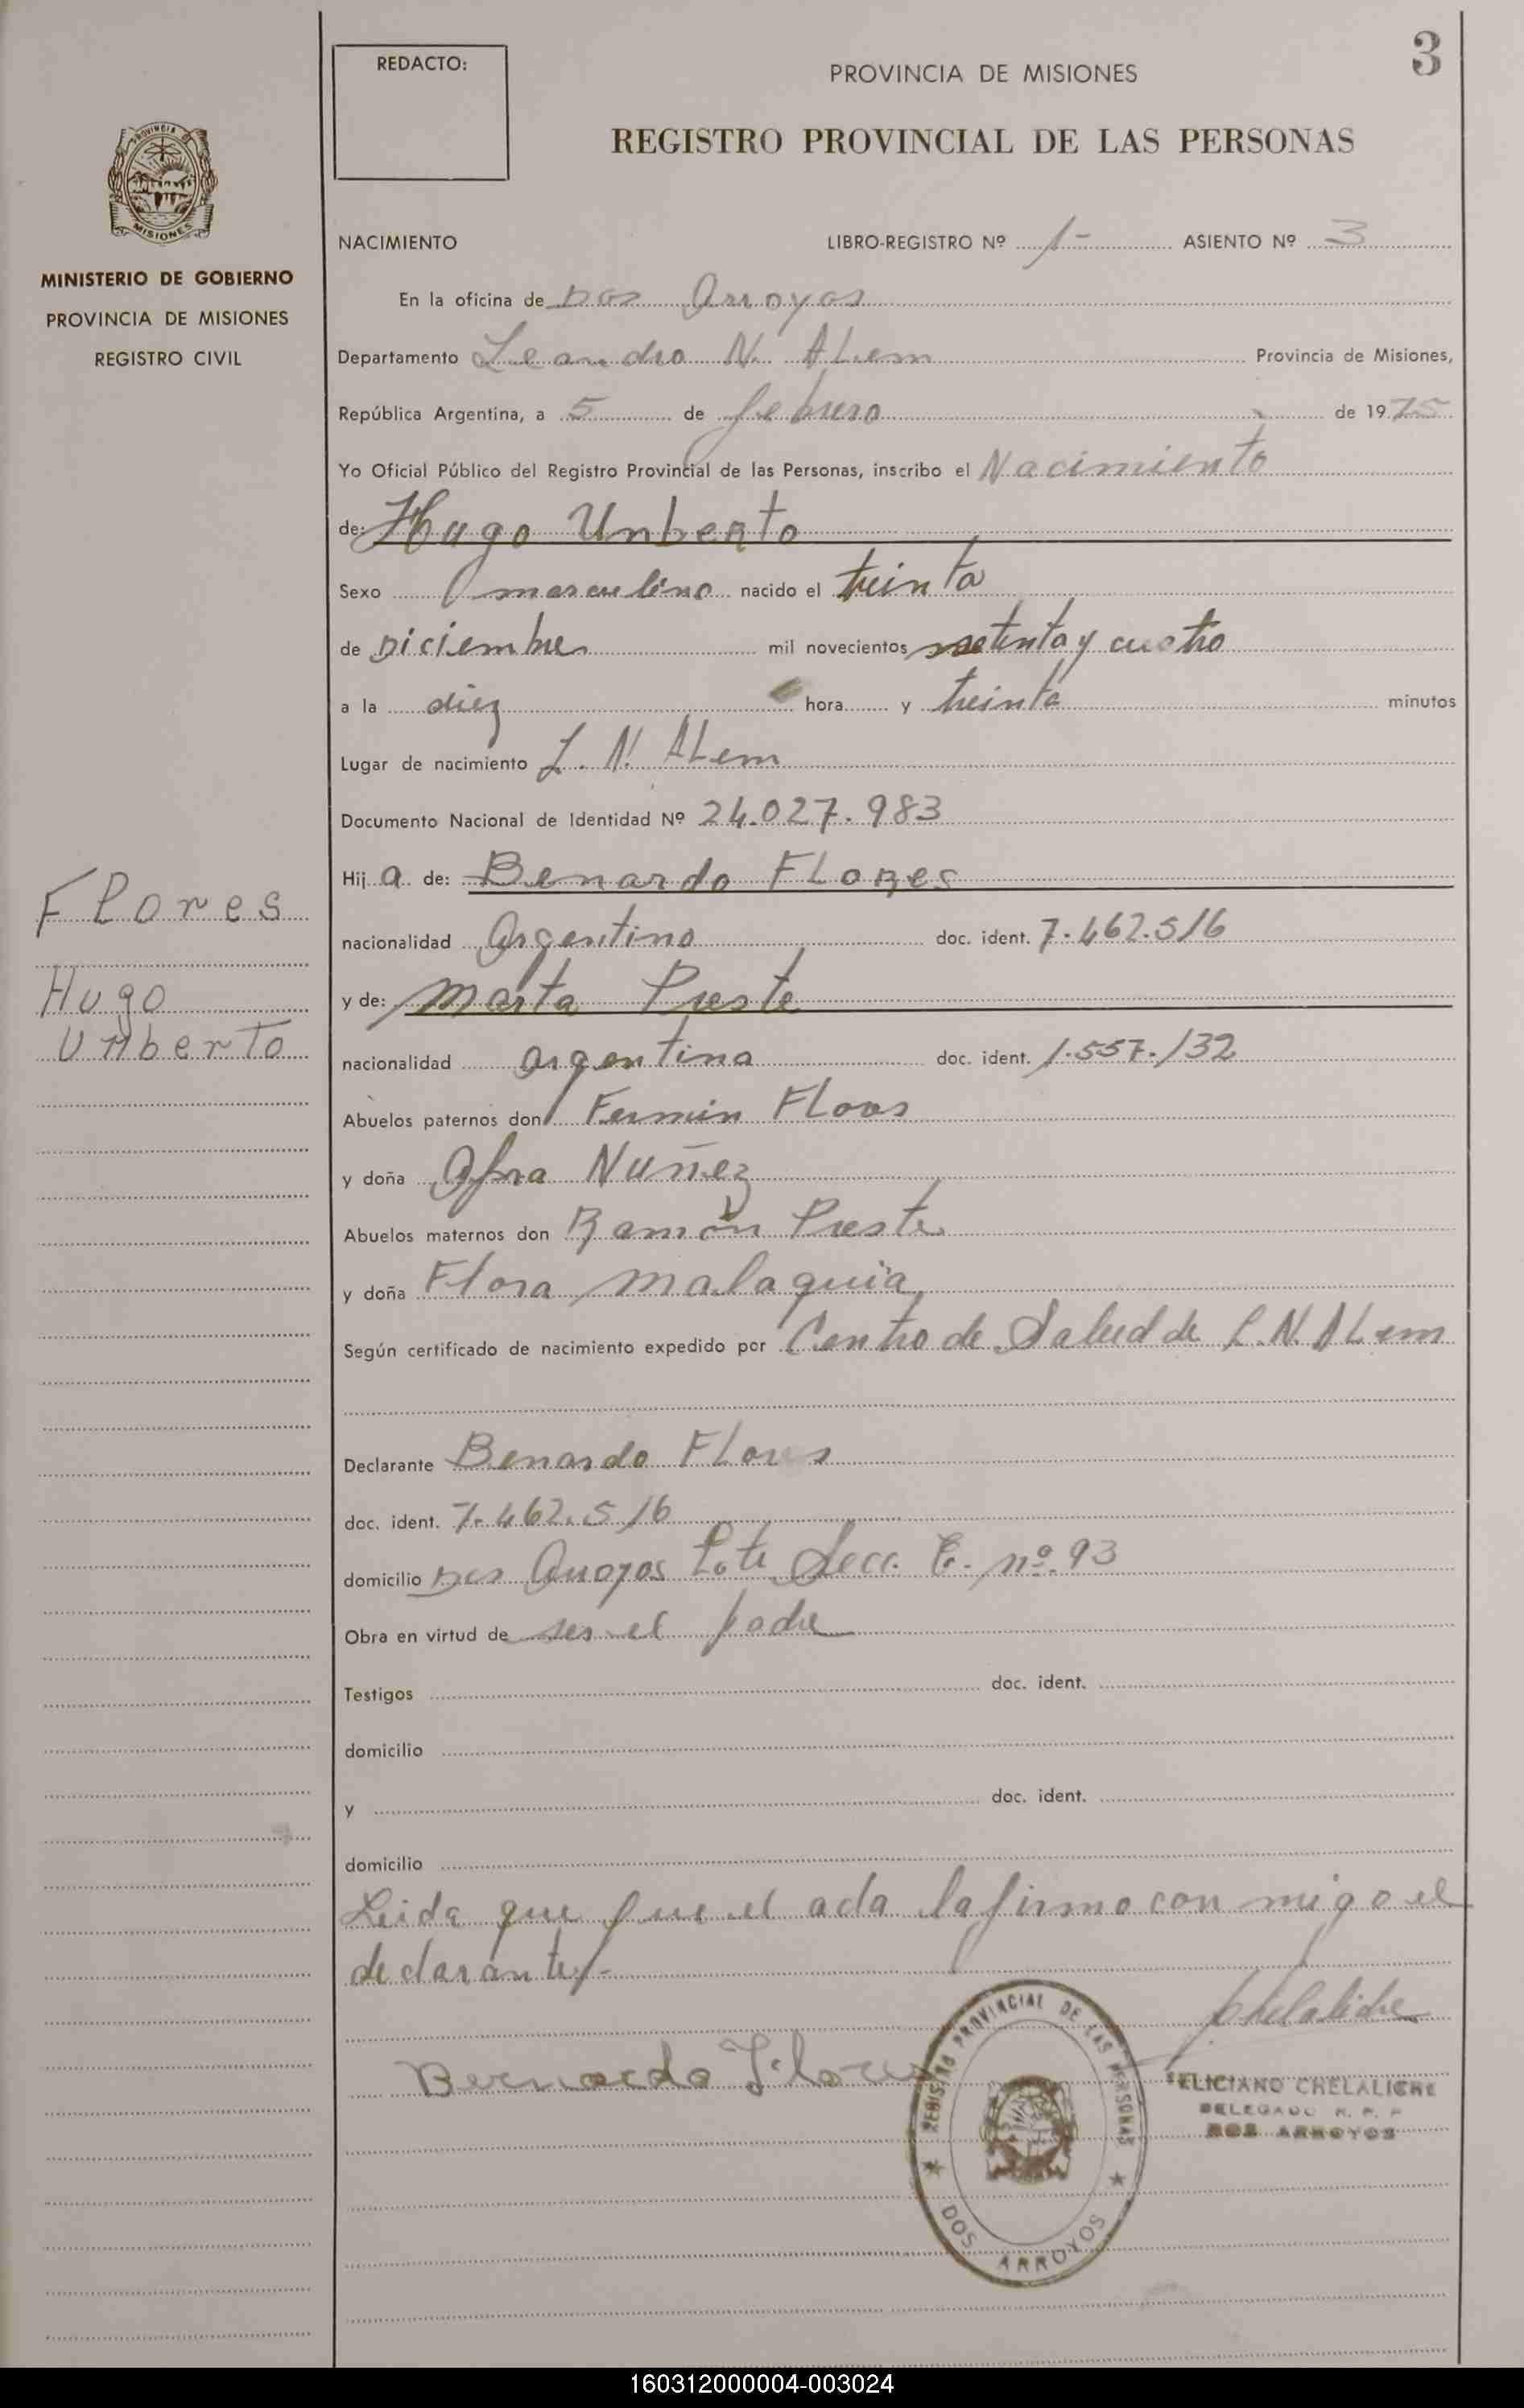 3
REDACTO:
PROVINCIA DE MISIONES
REGISTRO PROVINCIAL DE LAS PERSONAS
PROVINCIA DE
MISIONES
MINISTERIO DE GOBIERNO
PROVINCIA DE MISIONES
REGISTRO CIVIL
NACIMIENTO LIBRO-REGISTRO Nº 1- ASIENTO Nº 3
En la oficina de Dos Arroyos
Departamento Leandro N. ALem Provincia de Misiones,
República Argentina, a 5 de febrero de 1975
Yo Oficial Público del Registro Provincial de las Personas, inscribo el Nacimiento
de: Hugo Unberto
Sexo masculino nacido el treinta
de Diciembre mil novecientos setenta y cuatro
a la diez hora y treinta minutos
Lugar de nacimiento L. N. ALem
Documento Nacional de Identidad Nº 24.027.983
Hij a de: Benardo FLores
nacionalidad Argentino doc. ident. 7.462.516
y de: Marta Preste
nacionalidad argentina doc. ident. 1.557.132
Abuelos paternos don Fermin Flores
y doña Afra Nuñez
Abuelos maternos don Ramón Preste
y doña Flora Malaquia
Según certificado de nacimiento expedido por Centro de Salud de L.N. ALem
Declarante Benardo FLores
doc. ident. 7.462.516
domicilio Dos Arroyos Lote Secc. nº. 93
Obra en virtud de ser el padre
Testigos doc. ident.
domicilio
y doc. ident.
domicilio
Leida que fue el acta la firmo con migo el
declarante/-
Flores
Hugo
Unberto
Bernardo Flores
Chelaliche
REGISTRO PROVINCIAL DE LAS PERSONAS
DOS ARROYOS
FELICIANO CHELALICHE
DELEGADO R. P. P
DOS ARROYOS
160312000004-003024